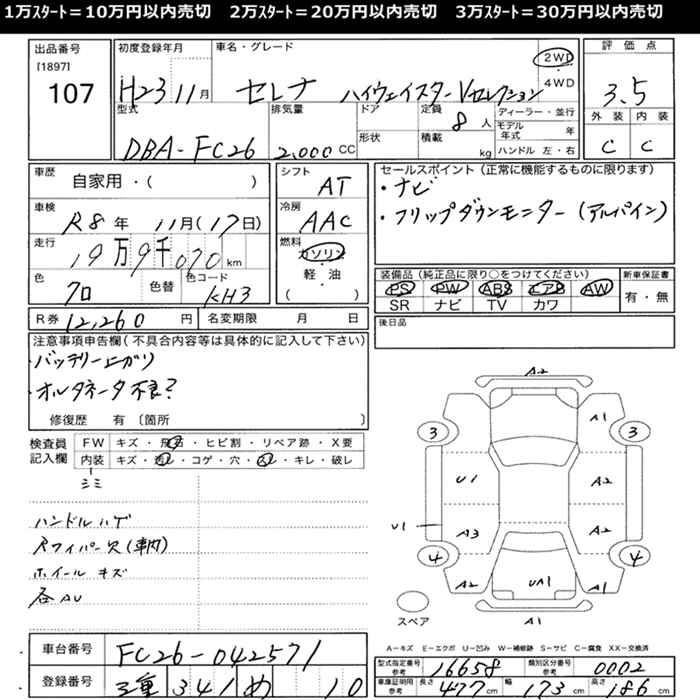 1万ｽﾀｰﾄ＝10万円以内売切　2万ｽﾀｰﾄ＝20万円以内売切　3万ｽﾀｰﾄ＝30万円以内売切
出品番号
[1897]
107
初度登録年月
H23 11月
車名・グレード
セレナ ハイウェイスター Vセレクション
2WD
4WD
評価点
3.5
外装 内装
C C
型式
DBA-FC26
排気量
2,000 CC
ドア
形状
定員
8人
積載
kg
ディーラー・並行
モデル年式 年
ハンドル 左・右
車歴
自家用・( )
車検
R8年 11月(17日)
走行
19万9千070km
色
クロ
色替
色コード
KH3
シフト
AT
冷房
AAC
燃料
ガソリン
軽・油
( )
セールスポイント(正常に機能するものに限ります)
・ナビ
・フリップダウンモニター(アルパイン)
装備品(純正品に限り○をつけてください)
PS PW ABS エアB AW
SR ナビ TV カワ
新車保証書
有・無
R券 12,260円
名変期限 月 日
後日品
注意事項申告欄(不具合内容等は具体的に記入して下さい)
・バッテリー上がり
・オルタネータ不良?
修復歴 有〔箇所 〕
検査員
記入欄
FW キズ・飛石・ヒビ割・リペア跡・X要
内装 キズ・コゲ・穴・キレ・破レ
シミ
ハンドルハゲ
Rワイパー欠(車内)
ホイールキズ
各AU
A2
A1
3
3
U1
A2
U1
A3
A2
4
4
A2
UA1
A1
A1
スペア
A－キズ E－エクボ U－凹み W－補修跡 S－サビ C－腐食 XX－交換済
車台番号
FC26-042571
登録番号
三重 341 め 10
型式指定番号
参考
16658
類別区分番号
参考
0002
車庫証明用
参考
長さ 477cm
幅 173cm
高さ 186cm